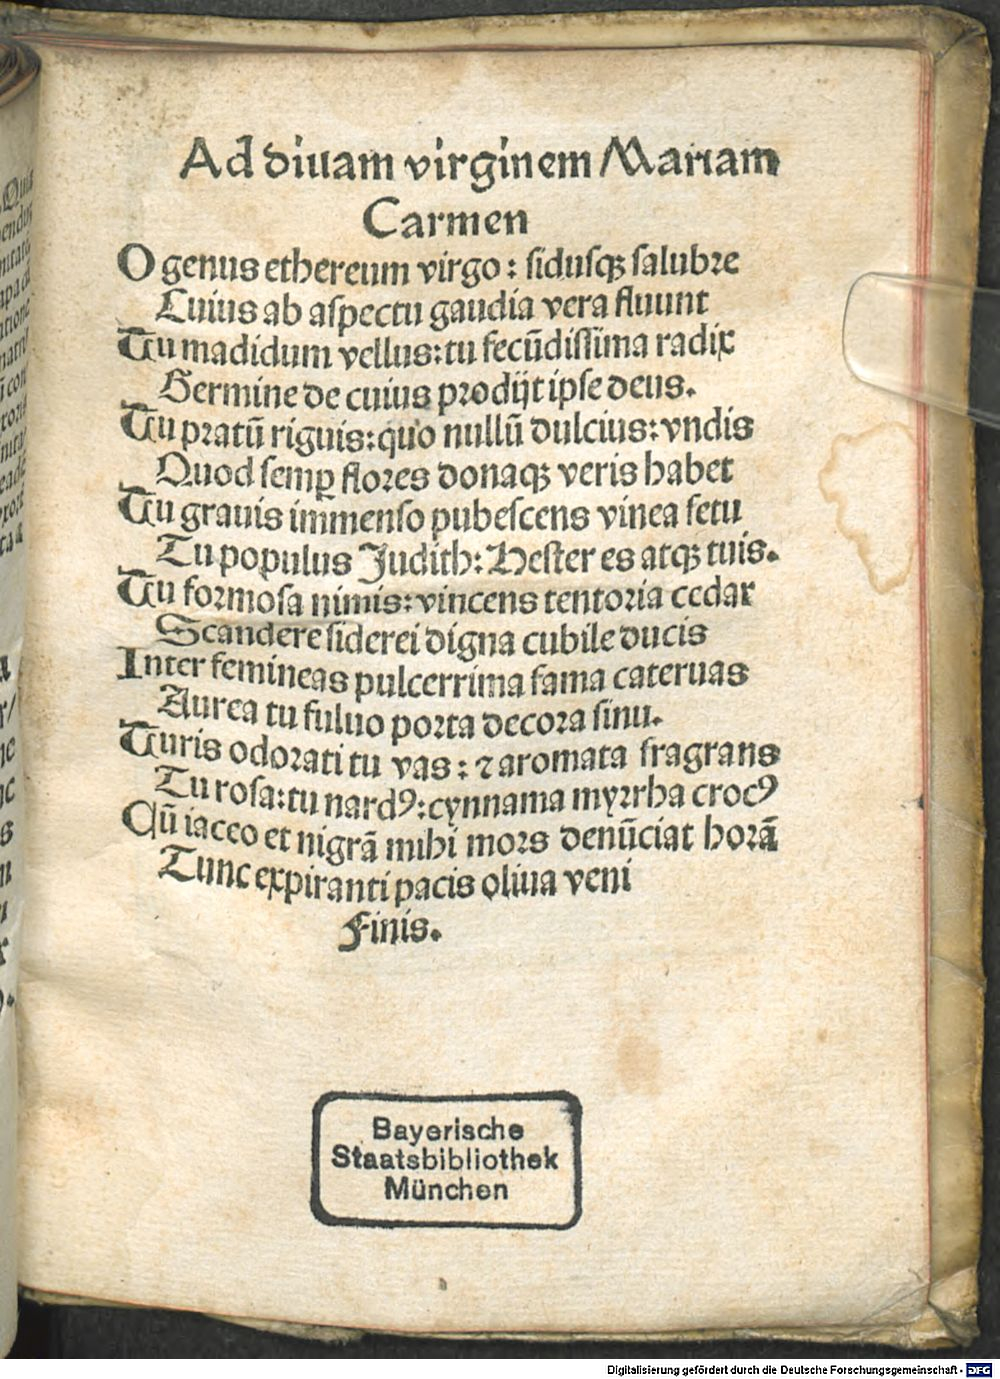 Ad diuam virginem Mariam
Carmen
O genus ethereum virgo: sidusqꝫ salubre
Cuius ab aspectu gaudia vera fluunt
Tu madidum vellus: tu fecūdissima radix
Germine de cuius prodijt ipse deus.
Tu pratū riguis: quo nullū dulcius: vndis
Quod semꝑ flores donaqꝫ veris habet
Tu grauis immenso pubescens vinea fetu
Tu populus Judith: Hester es atqꝫ tuis.
Tu formosa nimis: vincens tentoria cedar
Scandere siderei digna cubile ducis
Inter femineas pulcerrima fama cateruas
Aurea tu fuluo porta decora sinu.
Turis odorati tu vas: ⁊ aromata fragrans
Tu rosa: tu nardꝰ: cynnama myrrha crocꝰ
Cū iaceo et nigrā mihi mors denūciat horā
Tunc expiranti pacis oliua veni
Finis.
Bayerische
Staatsbibliothek
München
Digitalisierung gefördert durch die Deutsche Forschungsgemeinschaft - DFG